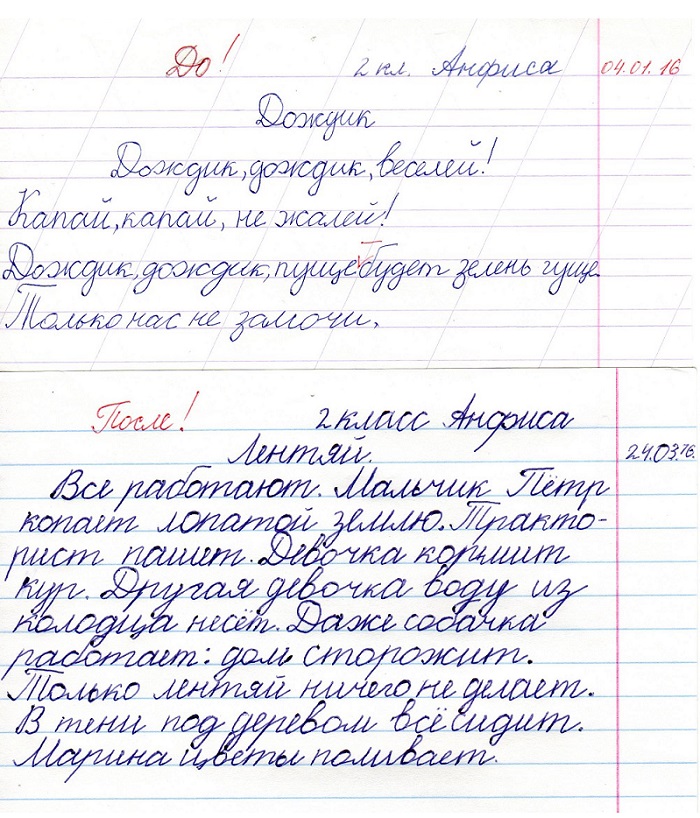 До! 2 кл. Анфиса 04.01.16
Дождик
Дождик, дождик, веселей!
Капай, капай, не жалей!
Дождик, дождик, пуще будет зелень гуще.
Только нас не замочи.
После! 2 класс Анфиса
Лентяй. 24.03.16.
Все работают. Мальчик Пётр
копает лопатой землю. Тракто-
рист пашет. Девочка кормит
кур. Другая девочка воду из
колодца несёт. Даже собачка
работает: дом сторожит.
Только лентяй ничего не делает.
В тени под деревом всё сидит.
Марина цветы поливает.